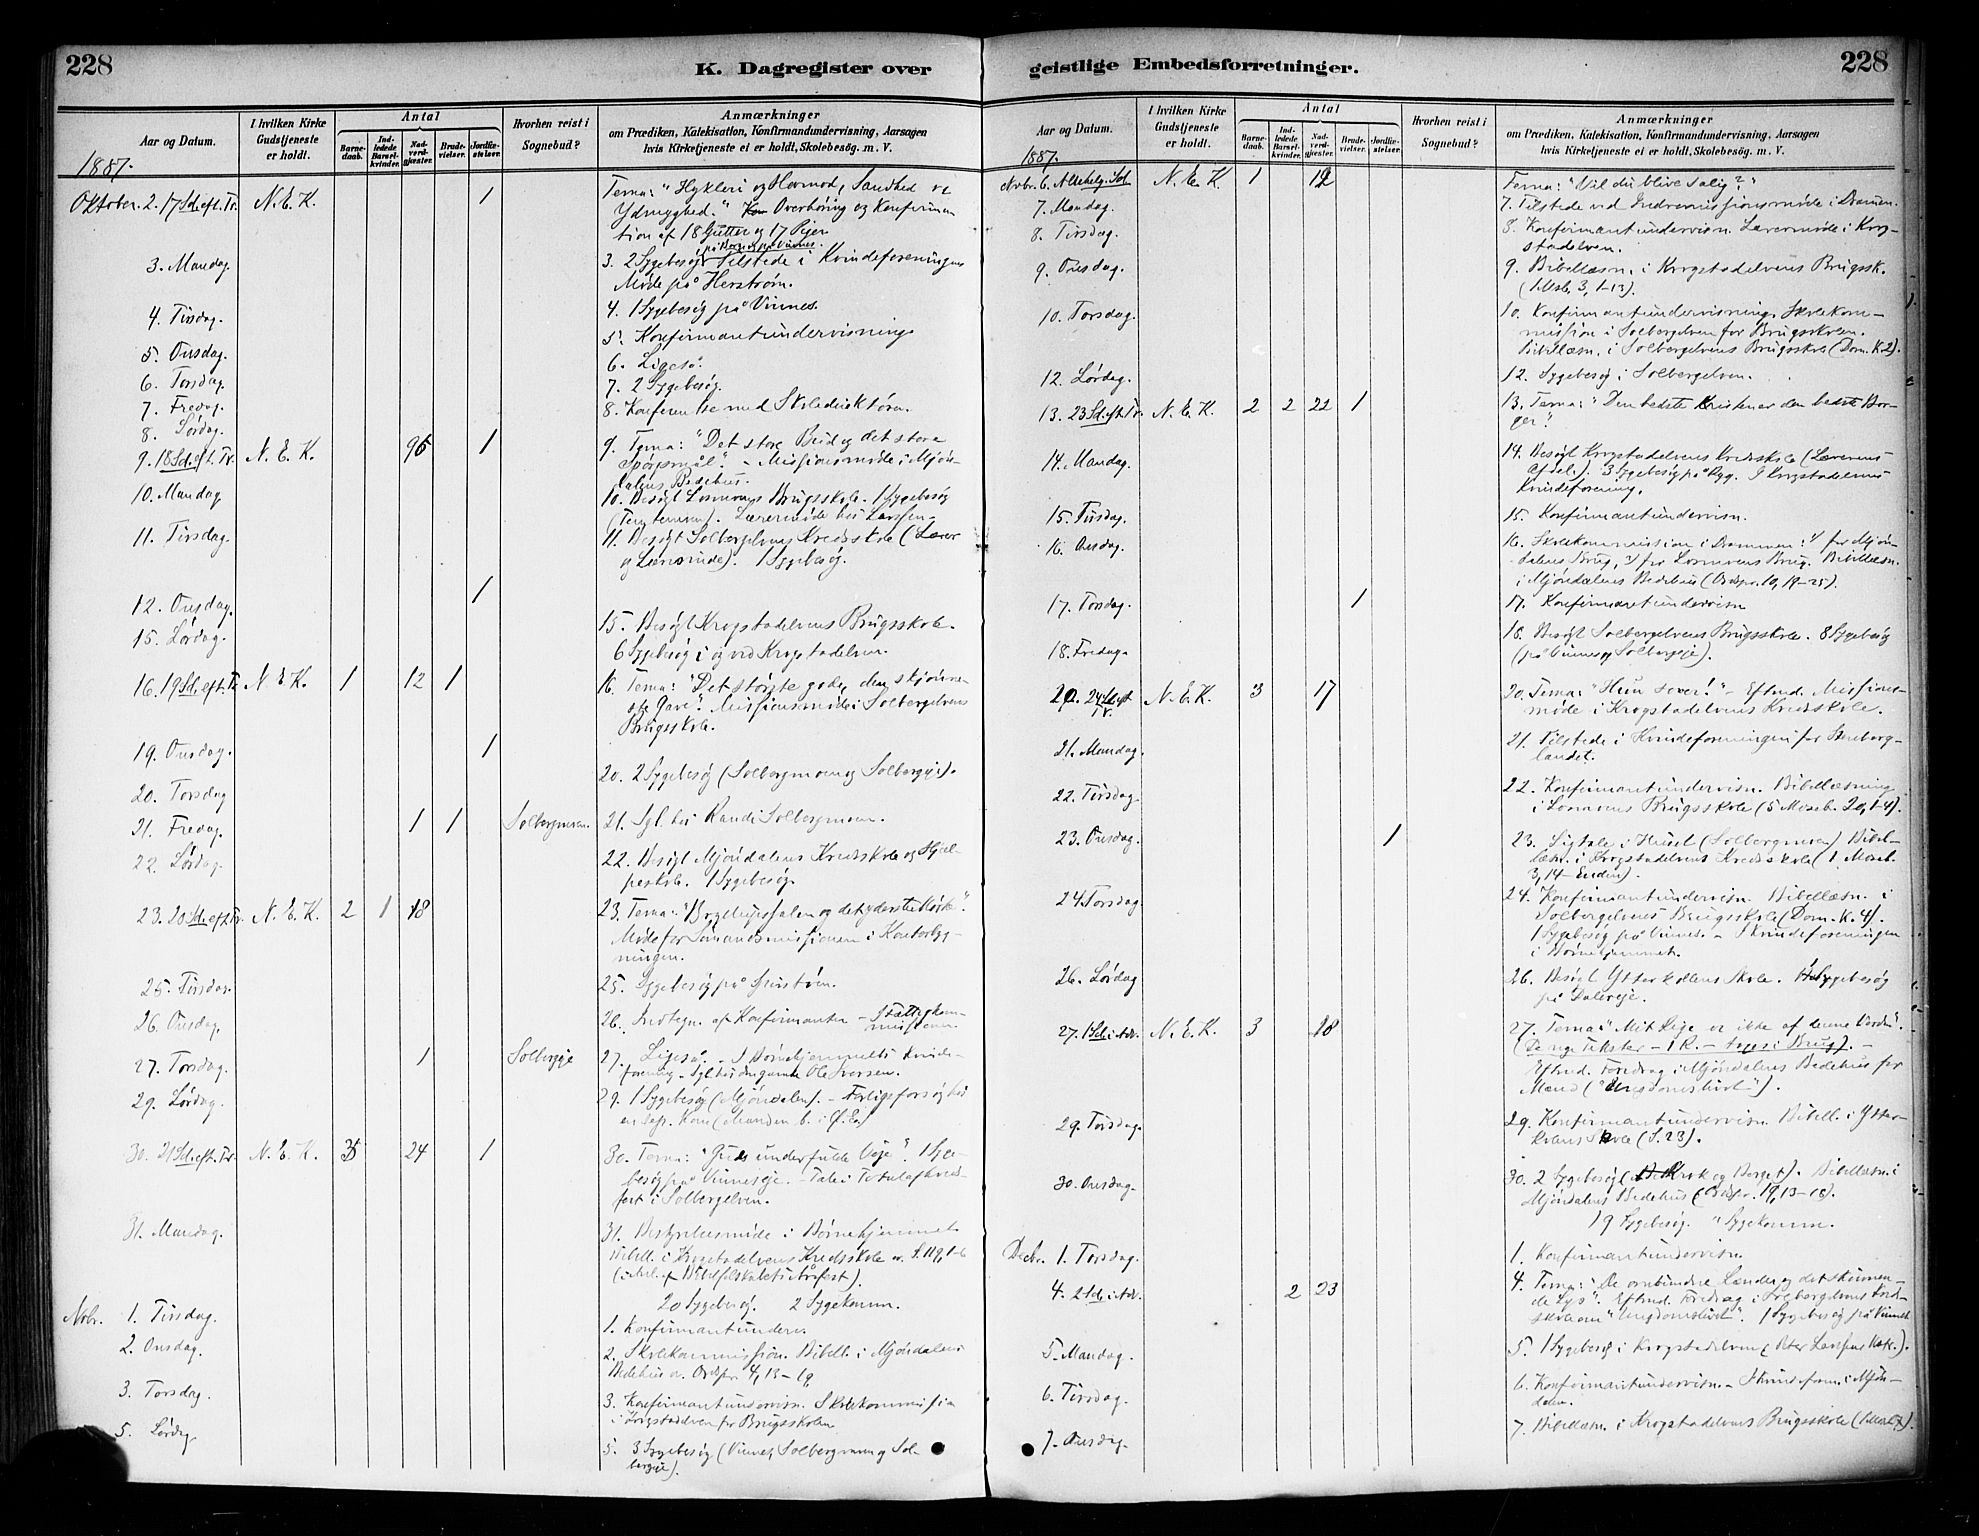 228
K. Dagregister over
Aar og Datum.
I hvilken Kirke Gudstjeneste er holdt.
Antal
Barne-daab.
Ind-ledede Barsel-kvinder.
Nad-verd-gjæster.
Brude-vielser.
Jordfæ-stelser.
Hvorhen reist i Sognebud?
Anmærkninger
om Prædiken, Katekisation, Konfirmandundervisning, Aarsagen
hvis Kirketjeneste ei er holdt, Skolebesøg. m. V.
1887.
Oktober. 2. 17 Sd. eft. Tr. N. E. K. 1 Tema: "Hykleri og Hovmod, Sandhed og
Ydmyghed." Overhøring og Konfirma
tion af 18 Gutter og 17 Piger
3. Mandag. 3. 2 Sygebesøg Tilstede i Kvindeforeningens
Møde på Herstrøm.
4. Tirsdag. 4. 1 Sygebesøg på Vinnes.
5. Onsdag. 5. Konfirmantundervisning
6. Torsdag. 6. Ligeså.
7. Fredag. 7. 2 Sygebesøg.
8. Lørdag. 8. Konferentse med Skoledirektøren.
9. 18 Sd. eft. Tr. N. E. K. 96 1 9. Tema: "Det store Bud og det store
Spørgsmål." - Missionsmøde i Mjøn-
dalens Bedehus.
10. Mandag 10. Besøgt Losmoens Brugsskole. 1 Sygebesøg
Lærermøde hos
11. Tirsdag. 11. Besøgt Solbergelvens Kredsskole (Lærer
og Lærerinde). 1 Sygebesøg.
12. Onsdag. 1
15. Lørdag. 15. Besøgt Krogstadelvens Brugsskole.
6 Sygebesøg i og ved Krogstadelven.
16. 19 Sd. eft. Tr. N. E. K. 1 12 1 16. Tema: "Det største gode, den skjønne-
ste Gave". Missionsmøde i Solbergelvens
Brugsskole.
19. Onsdag. 1
20. Torsdag 20. 2 Sygebesøg (Solbergmoen og Solbergeje).
21. Fredag. 1 1 Solbergmoen. 21. Sgl. hos Randi Solbergmoen.
22. Lørdag. 22. Besøgt Mjøndalens Kredsskole og Hjæl-
peskole. 1 Sygebesøg.
23. 20 Sd. eft. Tr. N. E. K. 2 1 18 23. Tema: "Bryllupssalen og det yderste Mørke".
Møde for Sømandsmissionen i Kontorbyg-
ningen.
25. Tirsdag. 25. Sygebesøg på
26. Onsdag. 26. Indtegn. af Konfirmanter - Fattigkom-
missionen
27. Torsdag. 1 Solbergeje 27. Ligeså. - I Børnehjemmets Kvinde-
forening - Sgl. hos den gamle Ole Iversen.
29. Lørdag. 29. 1 Sygebesøg (Mjøndalen). - Forligsforsøg hos
30. 21 Sd. eft. Tr. N. E. K. 24 1 30. Tema: "Guds underfulde Veje". 1 Syge-
besøg på Vinneseje. - Tale i Totalafholds-
fest i Solbergelven.
31. Mandag. 31. Bestyrelsesmøde i Børnehjemmet
Bibell. i Krogstadelvens Kredsskole
20 Sygebesøg. 2 Sygekomm.
Novbr. 1. Tirsdag. 1. Konfirmantunderv.
2. Onsdag. 2. Skolekommission. Bibell. i Mjøndalens
Bedehus
3. Torsdag. 3. Konfirmantundervisn. Skolekommission
i Krogstadelven for Brugsskolen
5. Lørdag 5. 3 Sygebesøg (Vinnes, Solbergmoen og Sol-
bergeje).
228
geistlige Embedsforretninger.
Aar og Datum.
I hvilken Kirke Gudstjeneste er holdt.
Antal
Barne-daab.
Ind-ledede Barsel-kvinder.
Nad-verd-gjæster.
Brude-vielser.
Jordfæ-stelser.
Hvorhen reist i Sognebud?
Anmærkninger
om Prædiken, Katekisation, Konfirmandundervisning, Aarsagen
hvis Kirketjeneste ei er holdt, Skolebesøg. m. V.
1887.
Novbr. 6. Allehelg. Sd. N. E. K. 1 12 Tema: "Vil du blive salig?"
7. Mandag. 7. Tilstede ved Indremissionsmøde i Drammen.
8. Tirsdag. 8. Konfirmantundervisn. Lærermøde i Krog-
stadelven.
9. Onsdag. 9. Bibellæsn. i Krogstadelvens Brugssk.
(1 Mosb. 3, 1-13).
10. Torsdag. 10. Konfirmantundervisning. Skolekom-
mission i Solbergelven for Brugsskolen.
Bibellæsn. i Solbergelvens Brugsskole (Dom. K. 2).
12. Lørdag. 12. Sygebesøg i Solbergelven.
13. 23 Sd. eft. Tr. N. E. K. 2 2 22 1 13. Tema: "Den bedste Kristen er den bedste Bor-
ger."
14. Mandag. 14. Besøgt Krogstadelvens Kredsskole (Lærerens
Afdel.). 3 Sygebesøg på Ryg. I Krogstadelvens
Kvindeforening.
15. Tirsdag. 15. Konfirmantundervisn.
16. Onsdag. 16. Skolekommission i Drammen: 1) for Mjøn-
dalens Brug, 2) for Losmoens Brug. Bibellæsn.
i Mjøndalens Bedehus (Ordspr. 10, 19-25).
17. Torsdag. 1 17. Konfirmantundervisn
18. Fredag. 18. Besøgt Solbergelvens Brugsskole. 8 Sygebesøg
(på Vinnes og Solbergeje).
20. 24 Sd. eft. Tr. N. E. K. 3 17 20. Tema: "Hun sover!" - Eftmd. Missions-
møde i Krogstadelvens Kredsskole.
21. Mandag. 21. Tilstede i Kvindeforeningen for
landet.
22. Tirsdag 22. Konfirmantundervisn. Bibellæsning
i Losmoens Brugsskole (5 Moseb. 20, 1-4).
23. Onsdag. 1 23. Ligtale i Huset (Solbergmoen) Bibel-
læsn. i Krogstadelvens Kredsskole (1 Moseb.
3, 14 - Enden).
24. Torsdag 24. Konfirmantundervisn. Bibellæsn. i
Solbergelvens Brugsskole (Dom. K. 4).
1 Sygebesøg på Vinnes. - I Kvindeforeningen
i Børnehjemmet.
26. Lørdag 26. Besøgt Ytterkollens Skole. Sygebesøg
på
27. 1 Sd. i Adv. N. E. K. 3 18 27. Tema: "Mit Rige er ikke af denne Verden".
(De nye Tekster - 1 R. - tages i Brug). -
Eftmd. Foredrag i Mjøndalens Bedehus for
Mænd ("Ungdomslivet").
29. Tirsdag. 29. Konfirmantundervisn. Bibell. i Ytter-
kollens Skole (S. 23).
30. Onsdag. 30. 2 Sygebesøg ( Krok og Berget). Bibellæsn. i
Mjøndalens Bedehus (Ordspr. 19, 13-18).
19 Sygebesøg. " Sygekomm.
Decbr. 1. Torsdag. 1. Konfirmantundervisn.
4. 2 Sd. i Adv. 2 23 4. Tema: "De ombundne Lænder og det skinnen-
de Lys". Eftmd. Foredrag i Solbergelvens Kreds-
skole om "Ungdomslivet". 1 Sygebesøg på Vinnes
5. Mandag. 5. 1 Sygebesøg i Krogstadelven
6. Tirsdag. 6. Konfirmantundervisn. - I Kvindeforen. i Mjøn-
dalen.
7. Onsdag. 7. Bibellæsn. i Krogstadelvens Brugsskole